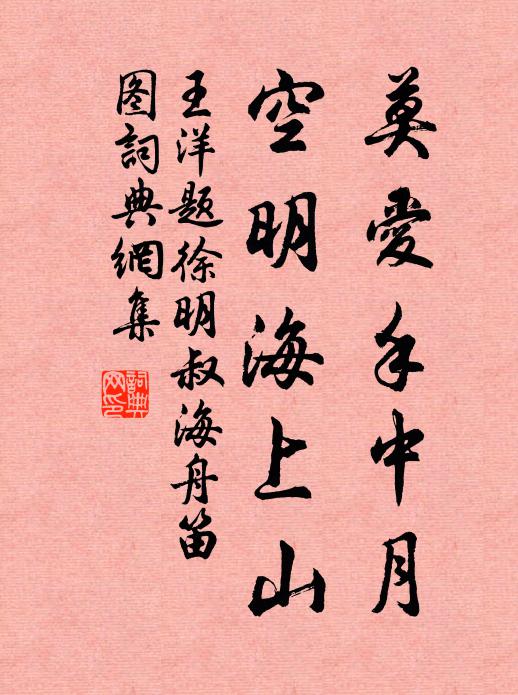 莫愛手中月
空明海上山
王洋題徐明叔海舟笛
图詞典網集
詞典
网印